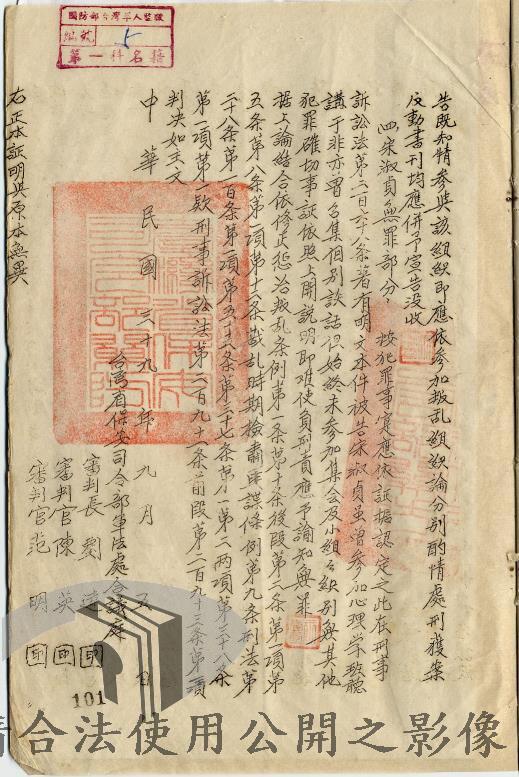 國防部台灣軍人監獄
編號 5
第一科名籍
告既知情參與該組織即應依參加叛乱組織論分別酌情處刑獲案
反動書刊均應併予宣告沒收
四宋淑貞無罪部分：按犯罪事實應依証據認定之此在刑事
訴訟法第二百六十八条著有明文本件被告宋淑貞虽曾参加心理学致聽
講于非亦曾召集個別談話但始終未参加集会及小組々織別無其他
犯罪確切事証依照上開說明即难使負刑責應予諭知無罪
据上論結合依修正懲治叛乱条例第一条第十条後段第二条第一項第
五条第八条第一項第十二条戡乱時期檢肅匪諜條例第九条刑法第
二十八条第一百条第一項第五十六条第三十七条第一第二两項第三十八条
第一項第一款刑事訴訟法第二百九十一条前段第二百九十三条第一項
判决如主文
中華民國三十九年九月五日
台灣省保安司令部軍法處合議庭
審判長劉 印
審判官陳英 印
審判官范明 印
右正本証明與原本無異
101
請合法使用公開之影像